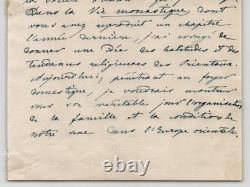 Dans la Vie monastique, dont
vous avez reproduit un chapitre
l'année dernière, j'ai essayé de
donner une Idée des habitudes et des
tendances religieuses des Orientaux.
Aujourd'hui, pénétrant au foyer
domestique, je voudrais montrer
sous son véritable jour l'organisation
de la famille et la condition de
notre vue dans l'Europe orientale.